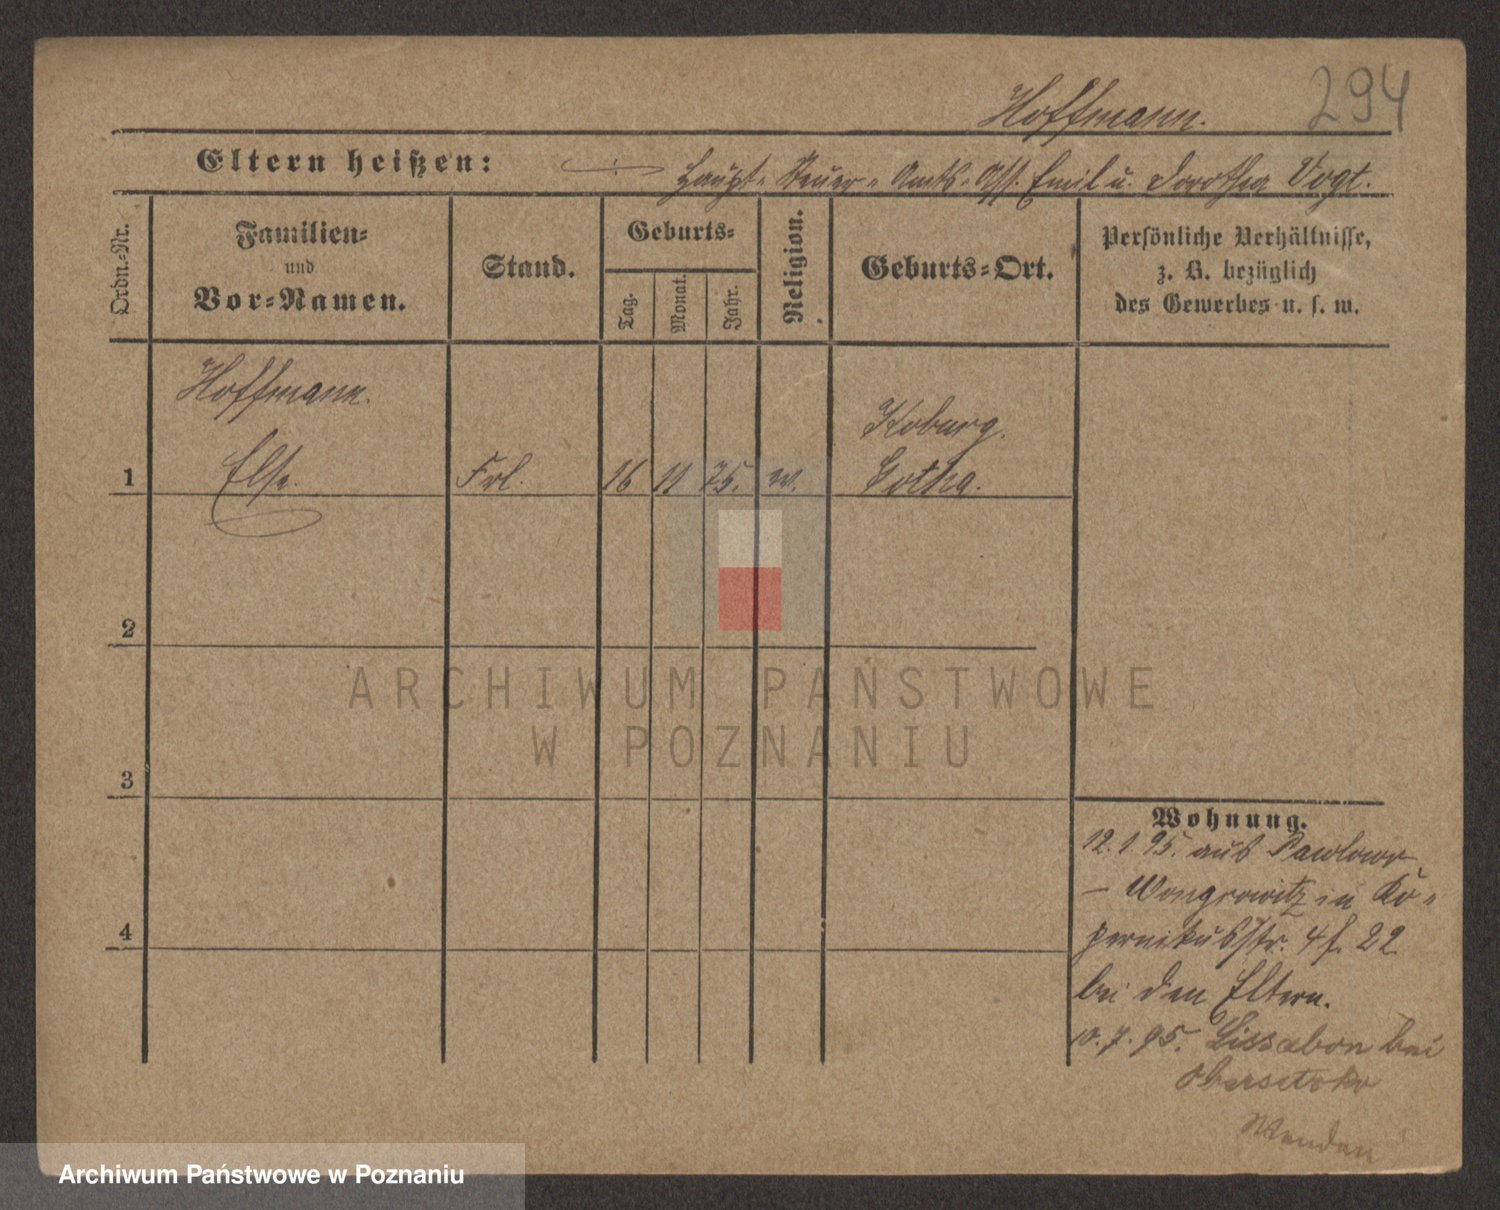 Hoffmann.
294
Eltern heißen:
Haupt-Steuer-Amts-Ass. Emil u. Dorothea Vogt.
Ordn.-Nr.
Familien-
und
Vor-Namen.
Stand.
Geburts-
Tag.
Monat.
Jahr.
Religion.
Geburts-Ort.
Persönliche Verhältnisse,
z. B. bezüglich
des Gewerbes u. s. w.
Hoffmann.
Koburg.
1
Else.
Frl.
16
11
75.
w.
Gotha.
2
ARCHIWUM PAŃSTWOWE
W POZNANIU
3
4
Wohnung.
12.1.95. aus Pawlowo
– Wongrowitz in Ko-
pernikusstr. 4 f. 22
bei den Eltern.
10.7.95. Lissabon bei
Obersitzko
Wenden
Archiwum Państwowe w Poznaniu